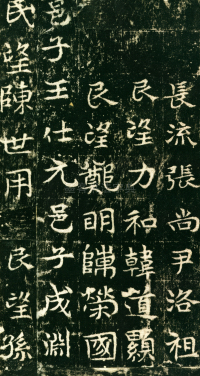 長流張尚尹洛祖
民望力和韓道顯
民望鄭明陳榮國
邑子王仕元邑子成淵
民望陳世用 民望孫